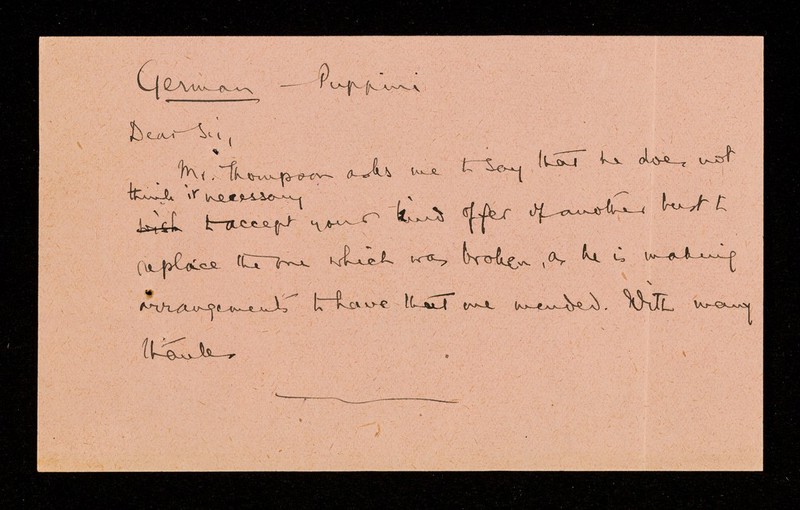 German – Puppini
Dear Sir,
Mr. Thompson asks me to say that he does not
think it necessary
wish to accept your kind offer of another bust to
replace the one which was broken, as he is making
arrangements to have that one mended. With many
thanks